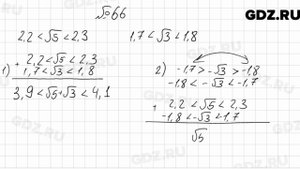 GDZ.RU
№66
2,2 < √5 < 2,3
1,7 < √3 < 1,8
1)
+ 2,2 < √5 < 2,3
1,7 < √3 < 1,8
3,9 < √5+√3 < 4,1
2)
-1,7 > -√3 > -1,8
-1,8 < -√3 < -1,7
+ 2,2 < √5 < 2,3
-1,8 < -√3 < 1,7
√5
GDZ.RU